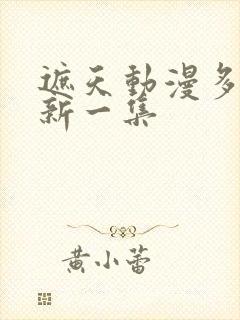 遮天動漫多
新一集
黄小蕾